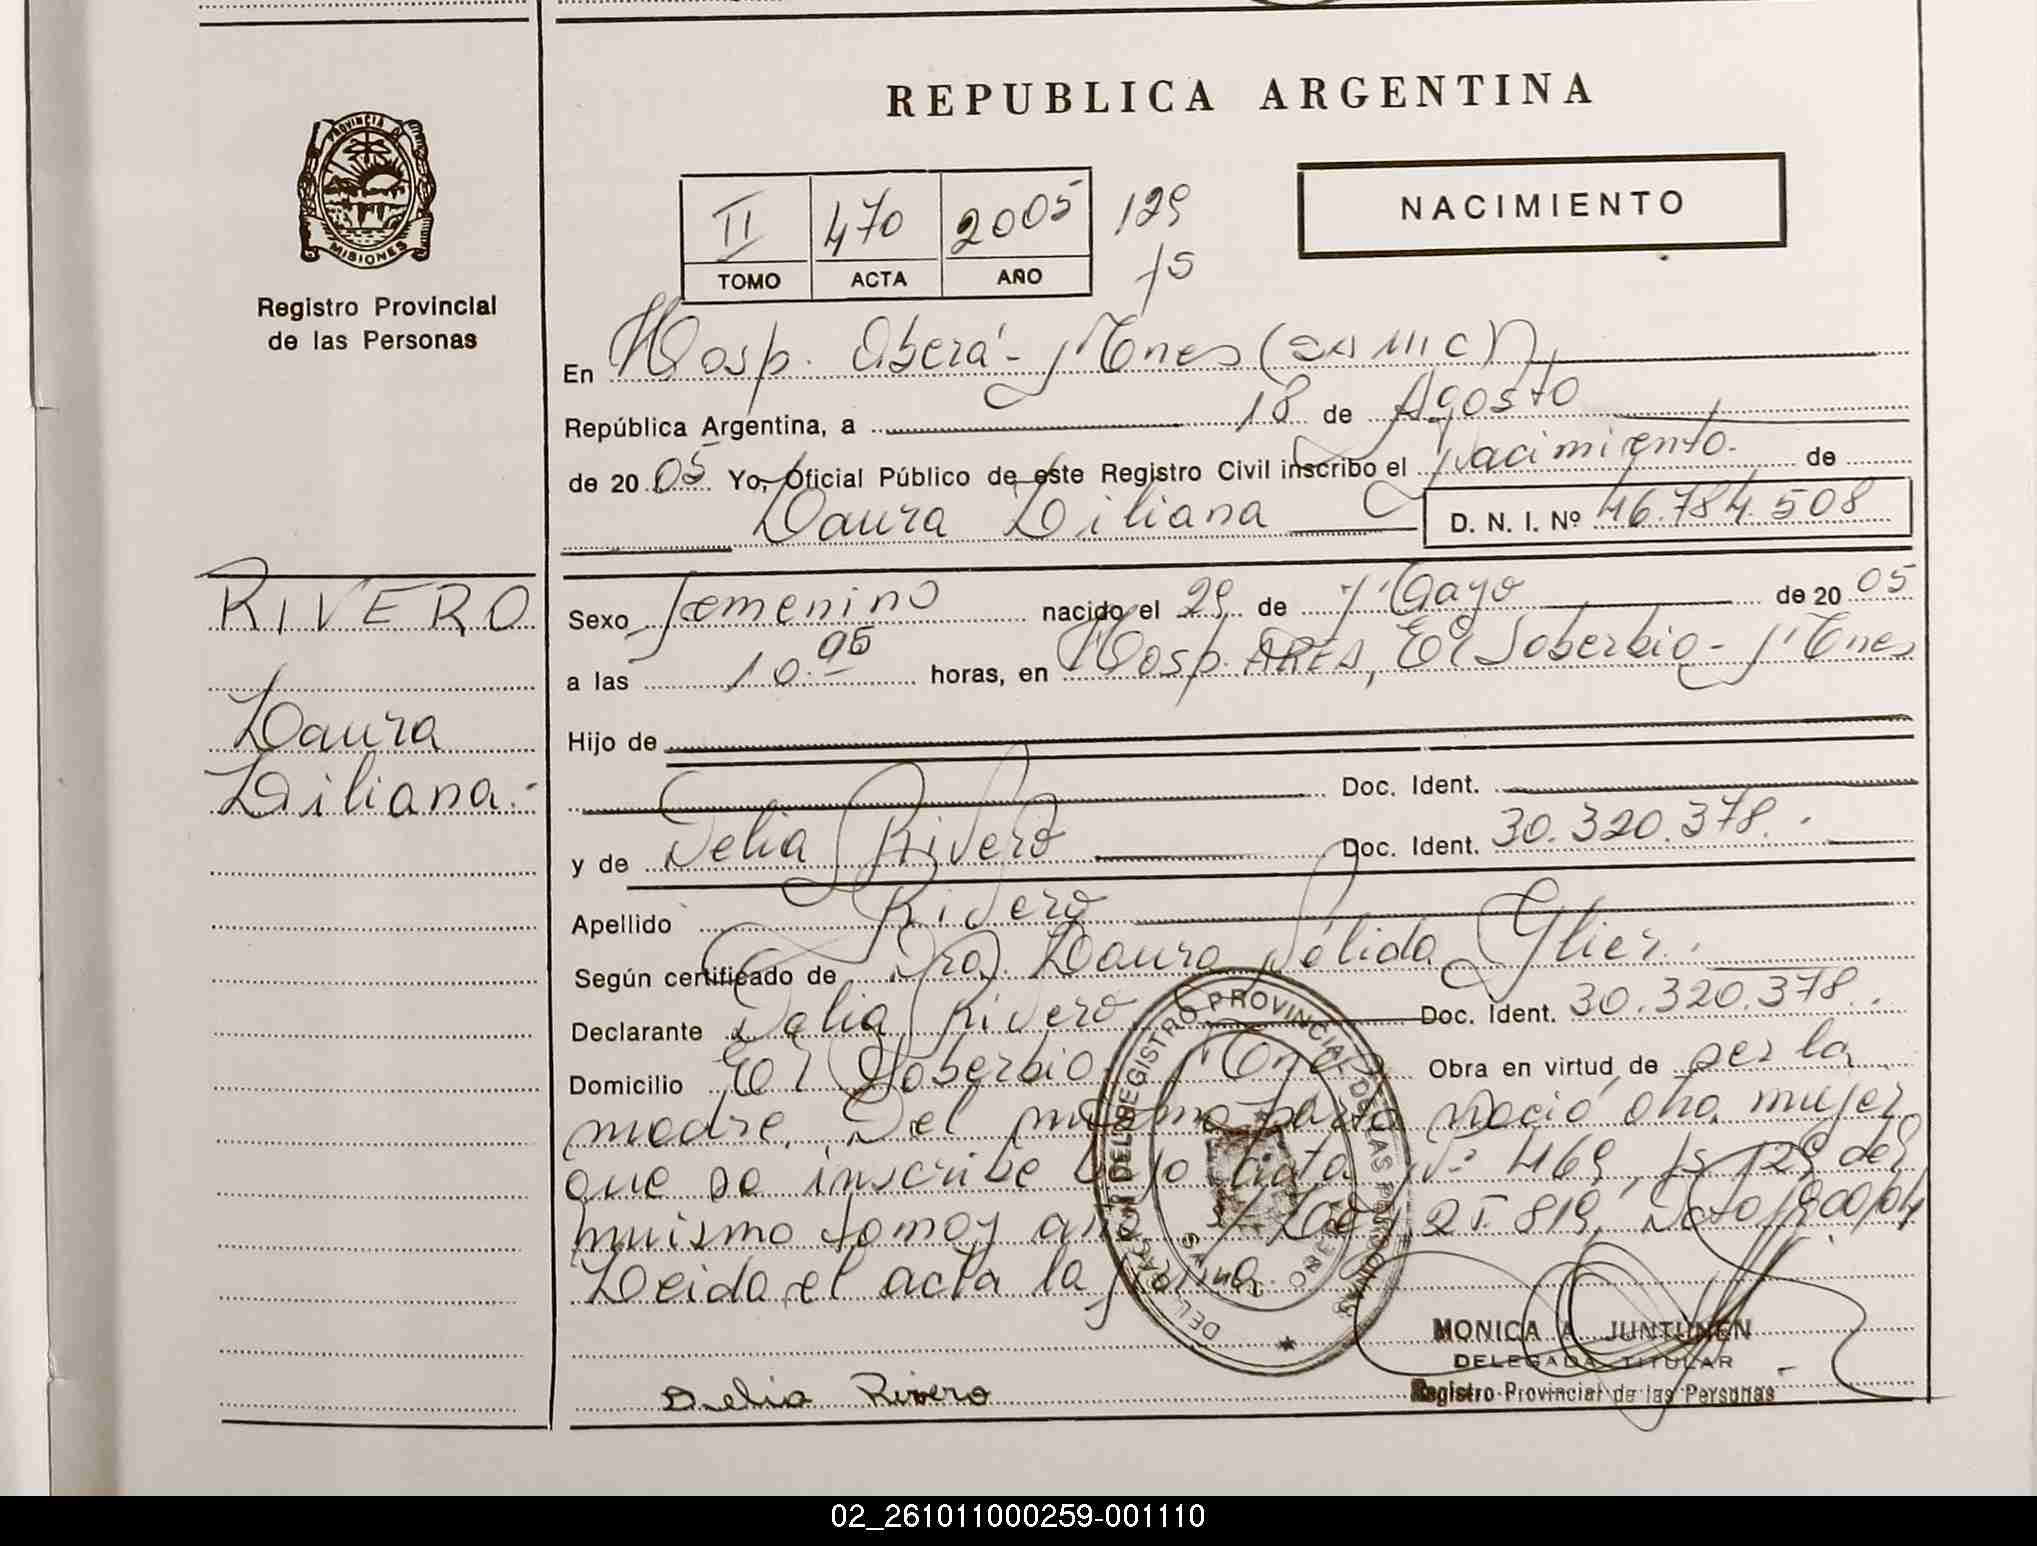 REPUBLICA ARGENTINA
PROVINCIA DE
MISIONES
Registro Provincial
de las Personas
II 470 2005 129
TOMO ACTA AÑO fs
NACIMIENTO
En Hosp. Oberá - Mnes (SAMIC)
República Argentina, a 18 de Agosto
de 2005 Yo, Oficial Público de este Registro Civil inscribo el Nacimiento de
Laura Liliana D. N. I. Nº 46.784.508
RIVERO
Laura
Liliana.-
Sexo Femenino nacido el 29 de Mayo de 2005
a las 10.05 horas, en Hosp. ARES, El Soberbio - Mnes
Hijo de
Doc. Ident.
y de Delia Rivero Doc. Ident. 30.320.378.
Apellido Rivero
Según certificado de Dra. Laura Nélida Glier.
Declarante Delia Rivero Doc. Ident. 30.320.378.
Domicilio El Soberbio Mnes Obra en virtud de ser la
madre. Del mismo parto nació otra mujer
que se inscribe bajo acta Nº 469, fs 129 del
muismo tomo y año. Ley 25.819, Dcto
Leida el acta la firma.
DELEGACION DEL REGISTRO PROVINCIAL DE LAS PERSONAS
MONICA A. JUNTUNEN
DELEGADA TITULAR
Registro Provincial de las Personas
Delia Rivero
02_261011000259-001110